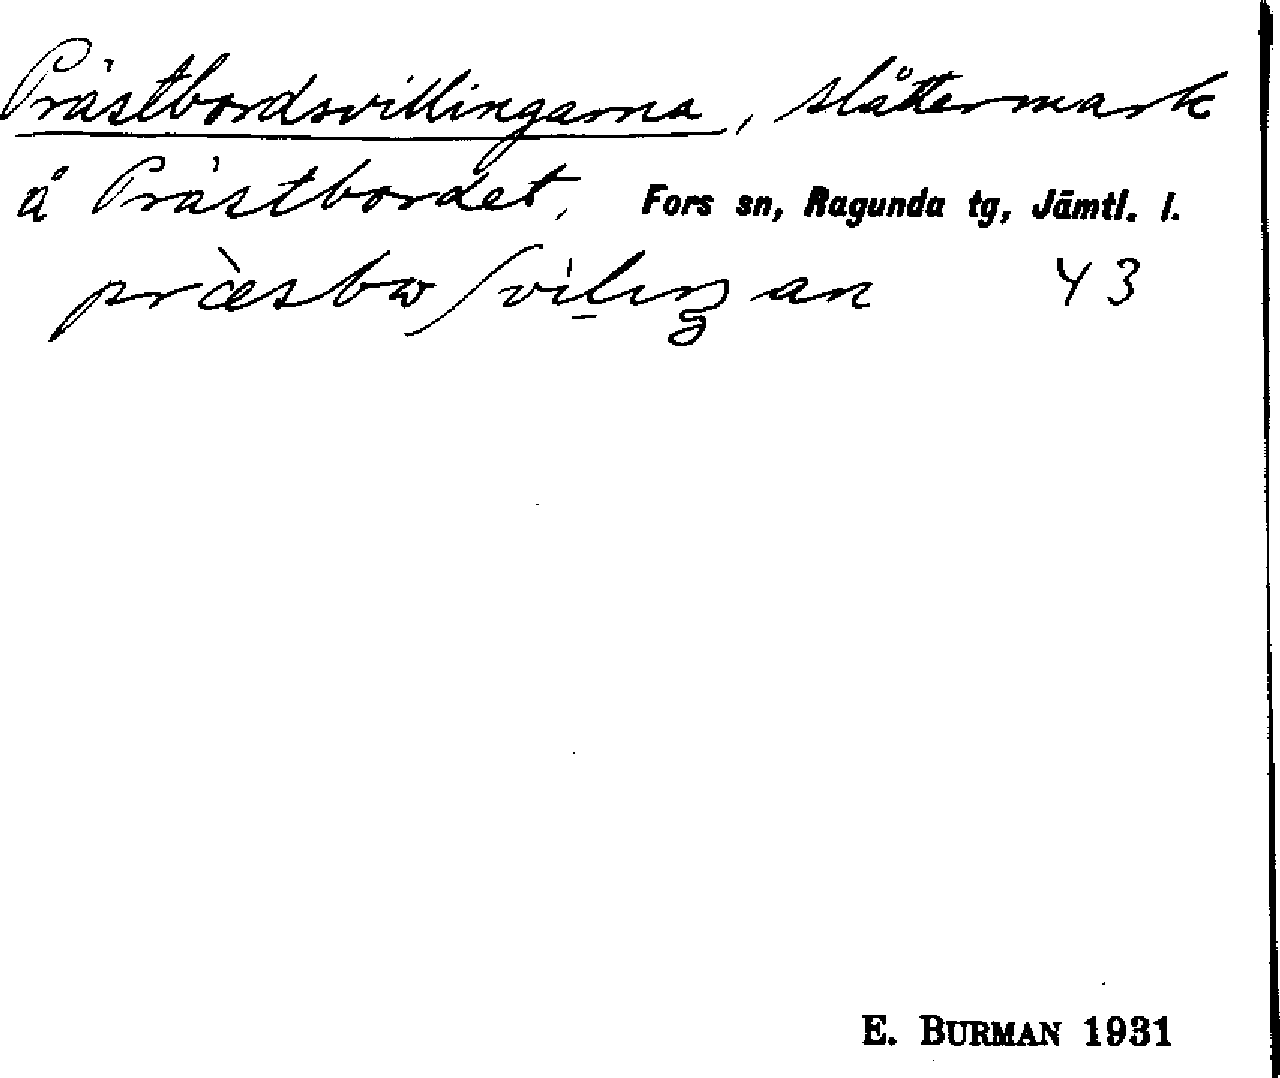 Prästbordsvillingarna, slåttermark
å Prästbordet, Fors sn, Ragunda tg, Jämtl. l.
43
E. BURMAN 1931